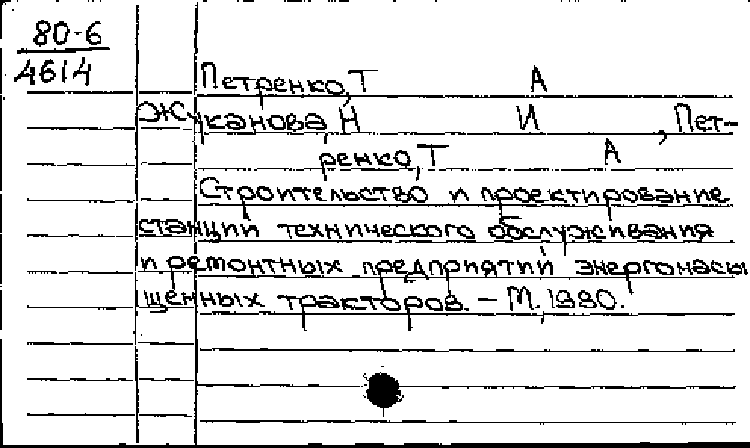 80-6
4614
Петренко, Т А
Жуканова, Н И , Пет-
ренко, Т А
Строительство и проектирование
станций технического обслуживания
и ремонтных предприятий энергонасы
щенных тракторов. – М., 1980.